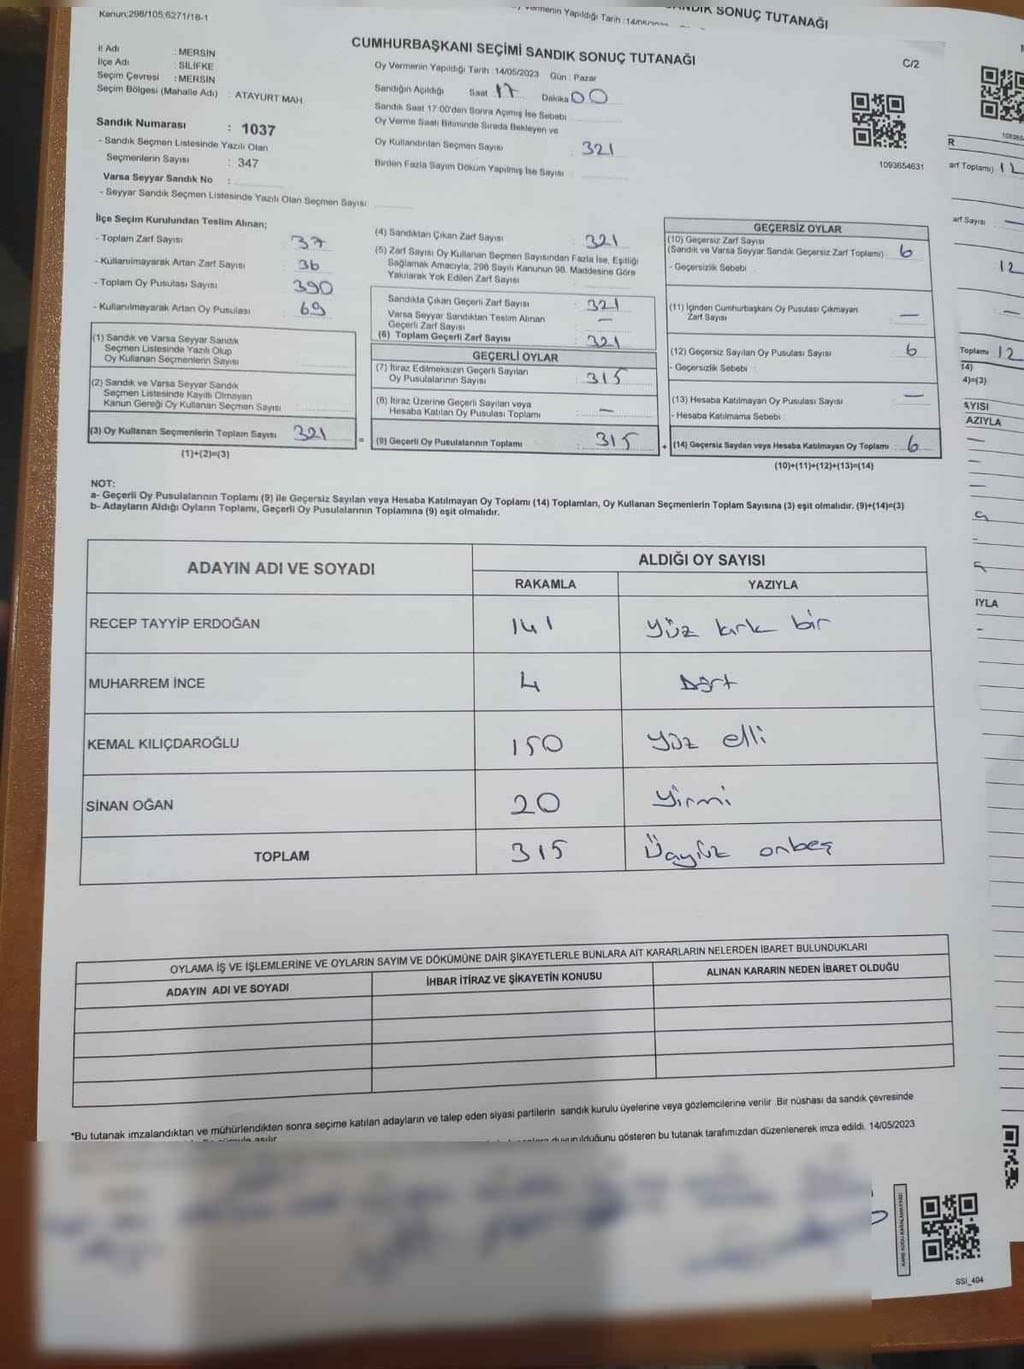 SANDIK SONUÇ TUTANAĞI
Oy Vermenin Yapıldığı Tarih
Kanun;298/105;6271/18-1
CUMHURBAŞKANI SEÇİMİ SANDIK SONUÇ TUTANAĞI
C/2
İl Adı : MERSİN
İlçe Adı : SİLİFKE
Seçim Çevresi : MERSİN
Seçim Bölgesi (Mahalle Adı) : ATAYURT MAH.
Oy Vermenin Yapıldığı Tarih : 14/05/2023 Gün : Pazar
Sandığın Açıldığı Saat 17 Dakika 00
Sandık Saat 17:00'den Sonra Açımış İse Sebebi
Oy Verme Saati Bitiminde Sırada Bekleyen ve
Oy Kullandırılan Seçmen Sayısı 321
Birden Fazla Sayım Döküm Yapılmış İse Sayısı
1093654631
Sandık Numarası : 1037
- Sandık Seçmen Listesinde Yazılı Olan
Seçmenlerin Sayısı : 347
Varsa Seyyar Sandık No :
- Seyyar Sandık Seçmen Listesinde Yazılı Olan Seçmen Sayısı
İlçe Seçim Kurulundan Teslim Alınan;
- Toplam Zarf Sayısı 37
- Kullanılmayarak Artan Zarf Sayısı 36
- Toplam Oy Pusulası Sayısı 390
- Kullanılmayarak Artan Oy Pusulası 69
(1) Sandık ve Varsa Seyyar Sandık
Seçmen Listesinde Yazılı Olup
Oy Kullanan Seçmenlerin Sayısı
(2) Sandık ve Varsa Seyyar Sandık
Seçmen Listesinde Kayıtlı Olmayan
Kanun Gereği Oy Kullanan Seçmen Sayısı
(3) Oy Kullanan Seçmenlerin Toplam Sayısı 321
(1)+(2)=(3)
(4) Sandıktan Çıkan Zarf Sayısı 321
(5) Zarf Sayısı Oy Kullanan Seçmen Sayısından Fazla İse, Eşitliği
Sağlamak Amacıyla, 298 Sayılı Kanunun 98. Maddesine Göre
Yakılarak Yok Edilen Zarf Sayısı
Sandıkta Çıkan Geçerli Zarf Sayısı 321
Varsa Seyyar Sandıktan Teslim Alınan
Geçerli Zarf Sayısı —
(6) Toplam Geçerli Zarf Sayısı 321
GEÇERLİ OYLAR
(7) İtiraz Edilmeksizin Geçerli Sayılan
Oy Pusulalarının Sayısı 315
(8) İtiraz Üzerine Geçerli Sayılan veya
Hesaba Katılan Oy Pusulası Toplamı —
= (9) Geçerli Oy Pusulalarının Toplamı 315
GEÇERSİZ OYLAR
(10) Geçersiz Zarf Sayısı
(Sandık ve Varsa Seyyar Sandık Geçersiz Zarf Toplamı) 6
- Geçersizlik Sebebi
(11) İçinden Cumhurbaşkanı Oy Pusulası Çıkmayan
Zarf Sayısı —
(12) Geçersiz Sayılan Oy Pusulası Sayısı 6
- Geçersizlik Sebebi
(13) Hesaba Katılmayan Oy Pusulası Sayısı —
- Hesaba Katılmama Sebebi
+ (14) Geçersiz Sayılan veya Hesaba Katılmayan Oy Toplamı 6
(10)+(11)+(12)+(13)=(14)
NOT:
a- Geçerli Oy Pusulalarının Toplamı (9) ile Geçersiz Sayılan veya Hesaba Katılmayan Oy Toplamı (14) Toplamları, Oy Kullanan Seçmenlerin Toplam Sayısına (3) eşit olmalıdır. (9)+(14)=(3)
b- Adayların Aldığı Oyların Toplamı, Geçerli Oy Pusulalarının Toplamına (9) eşit olmalıdır.
ADAYIN ADI VE SOYADI
ALDIĞI OY SAYISI
RAKAMLA YAZIYLA
RECEP TAYYİP ERDOĞAN 141 Yüz kırk bir
MUHARREM İNCE 4 Dört
KEMAL KILIÇDAROĞLU 150 Yüz elli
SİNAN OĞAN 20 Yirmi
TOPLAM 315 Üçyüz onbeş
OYLAMA İŞ VE İŞLEMLERİNE VE OYLARIN SAYIM VE DÖKÜMÜNE DAİR ŞİKAYETLERLE BUNLARA AİT KARARLARIN NELERDEN İBARET BULUNDUKLARI
ADAYIN ADI VE SOYADI İHBAR İTİRAZ VE ŞİKAYETİN KONUSU ALINAN KARARIN NEDEN İBARET OLDUĞU
*Bu tutanak imzalandıktan ve mühürlendikten sonra seçime katılan adayların ve talep eden siyasi partilerin sandık kurulu üyelerine veya gözlemcilerine verilir. Bir nüshası da sandık çevresinde
duyurulduğunu gösteren bu tutanak tarafımızdan düzenlenerek imza edildi. 14/05/2023
SSI_404
R
arf Toplamı) 12
arf Sayısı —
12
Toplamı 12
14)
4)=(3)
AYISI
AZIYLA
IYLA